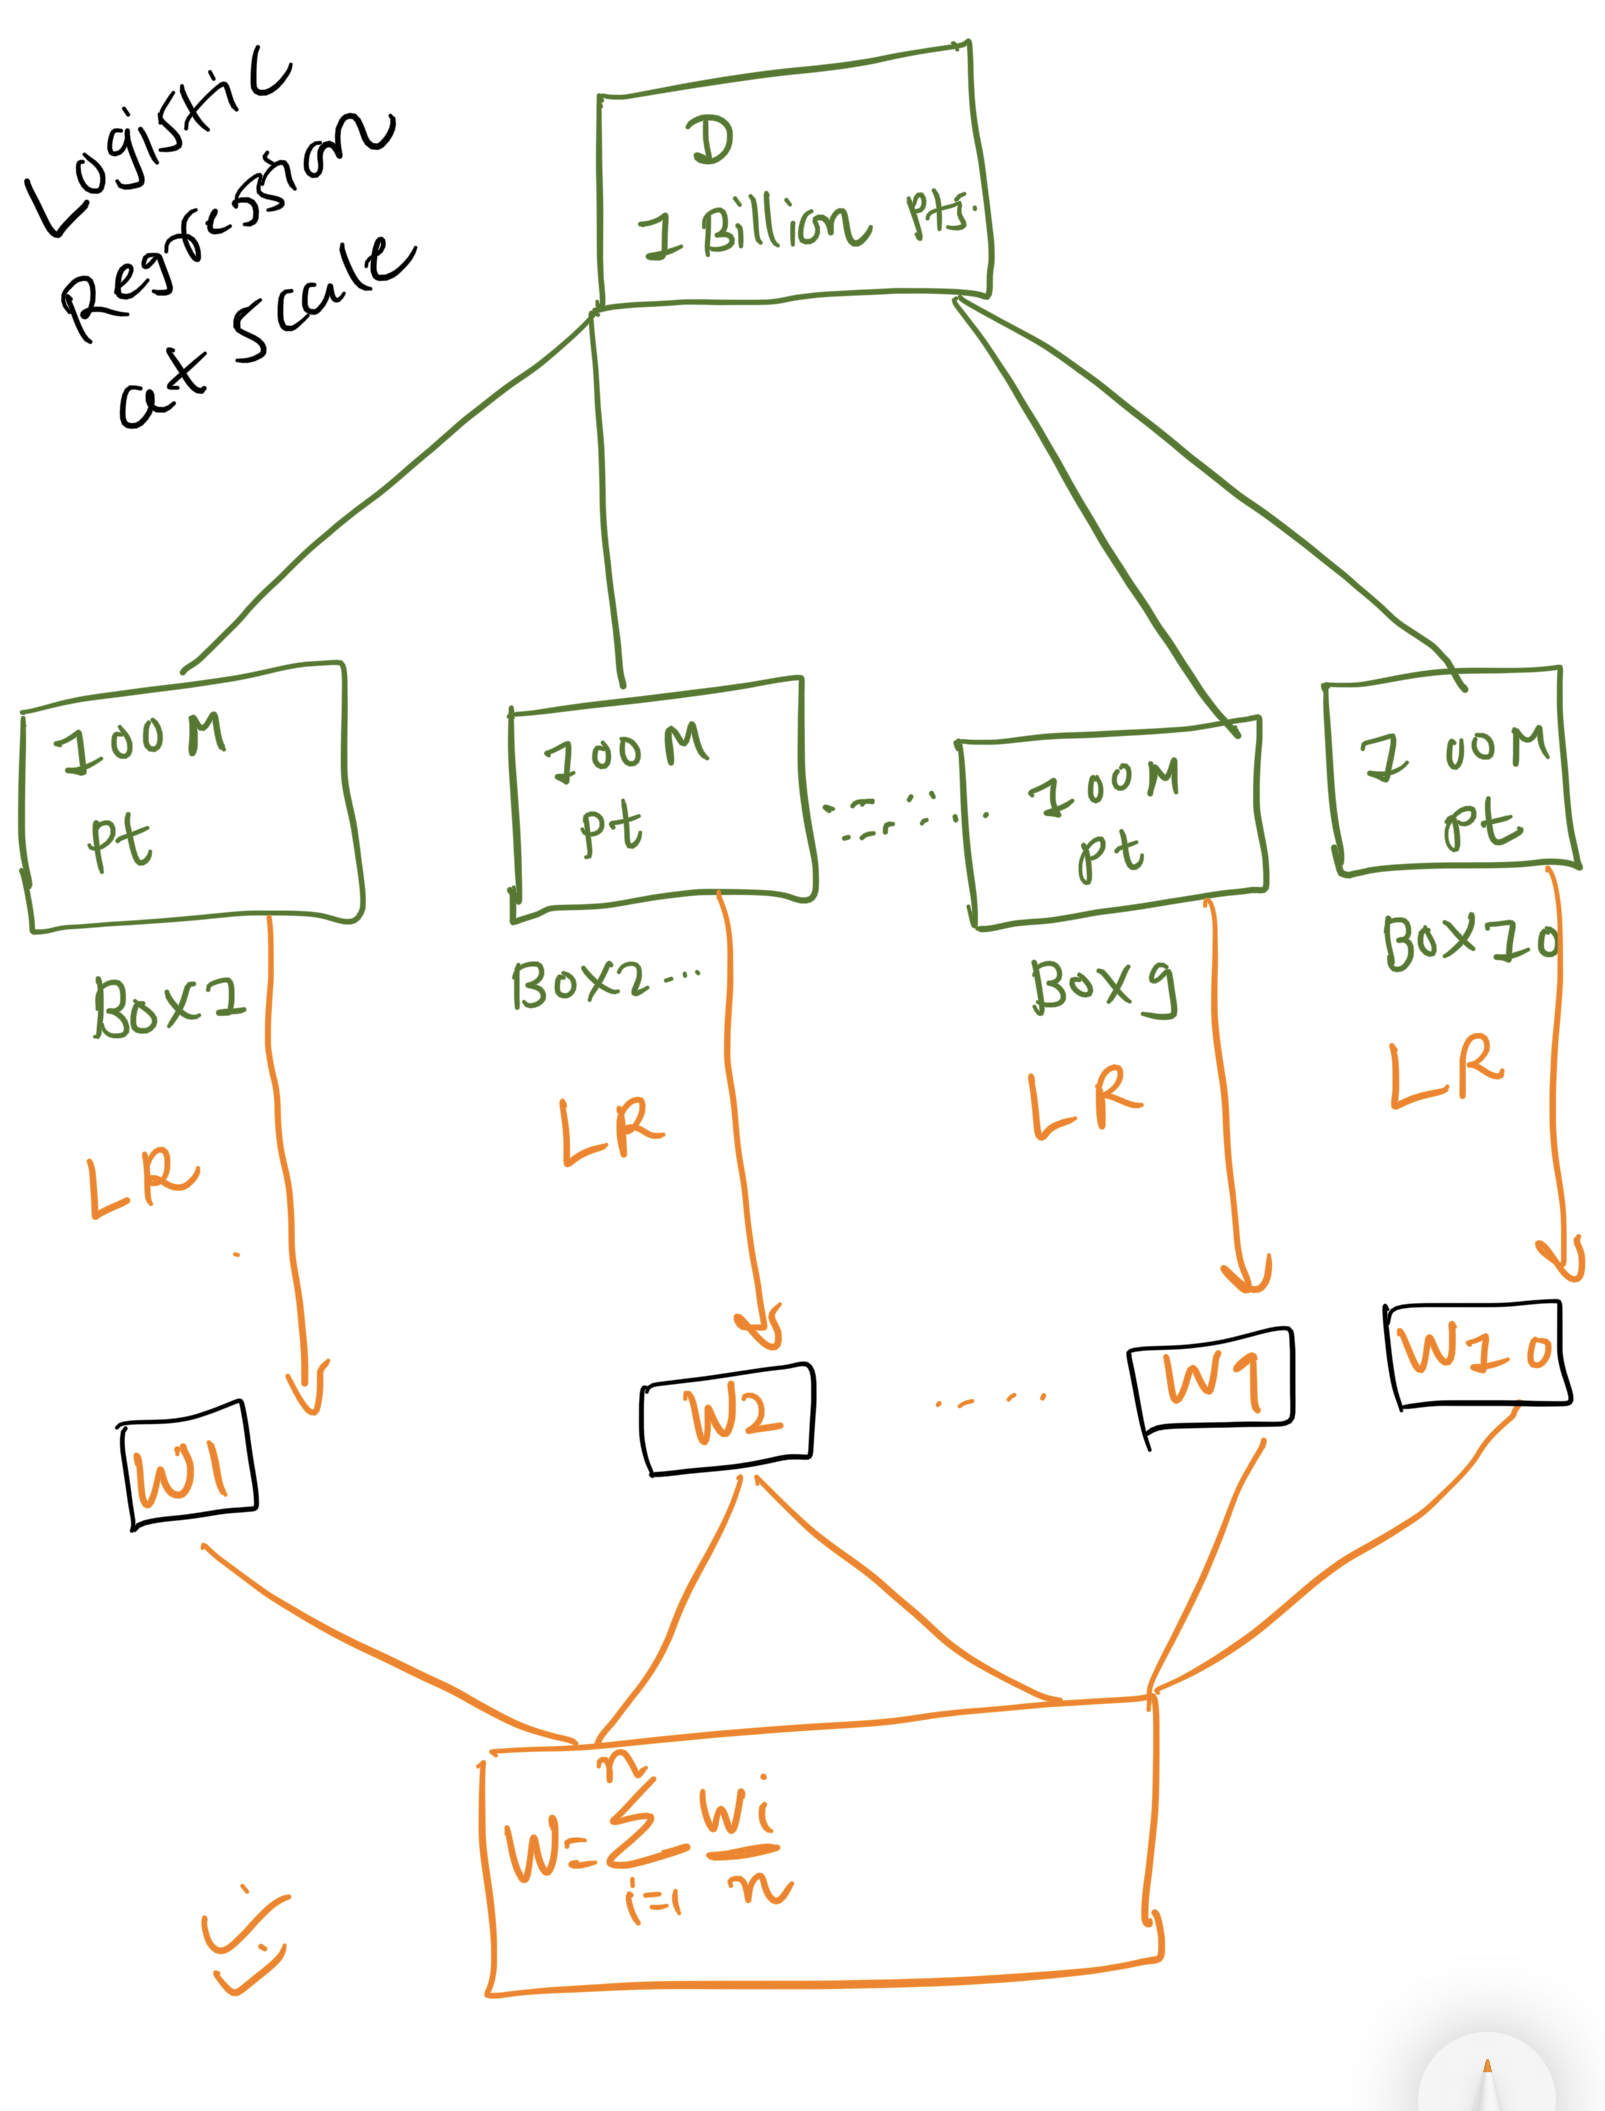 Logistic
Regression
at scale
D
1 Billion pts.
100M
pt
100M
pt
100M
pt
100M
pt
BOX1
BOX2...
BOX9
BOX10
LR
LR
LR
LR
W1
W2
....
W9
W10
W = n∑i=1 Wi/n